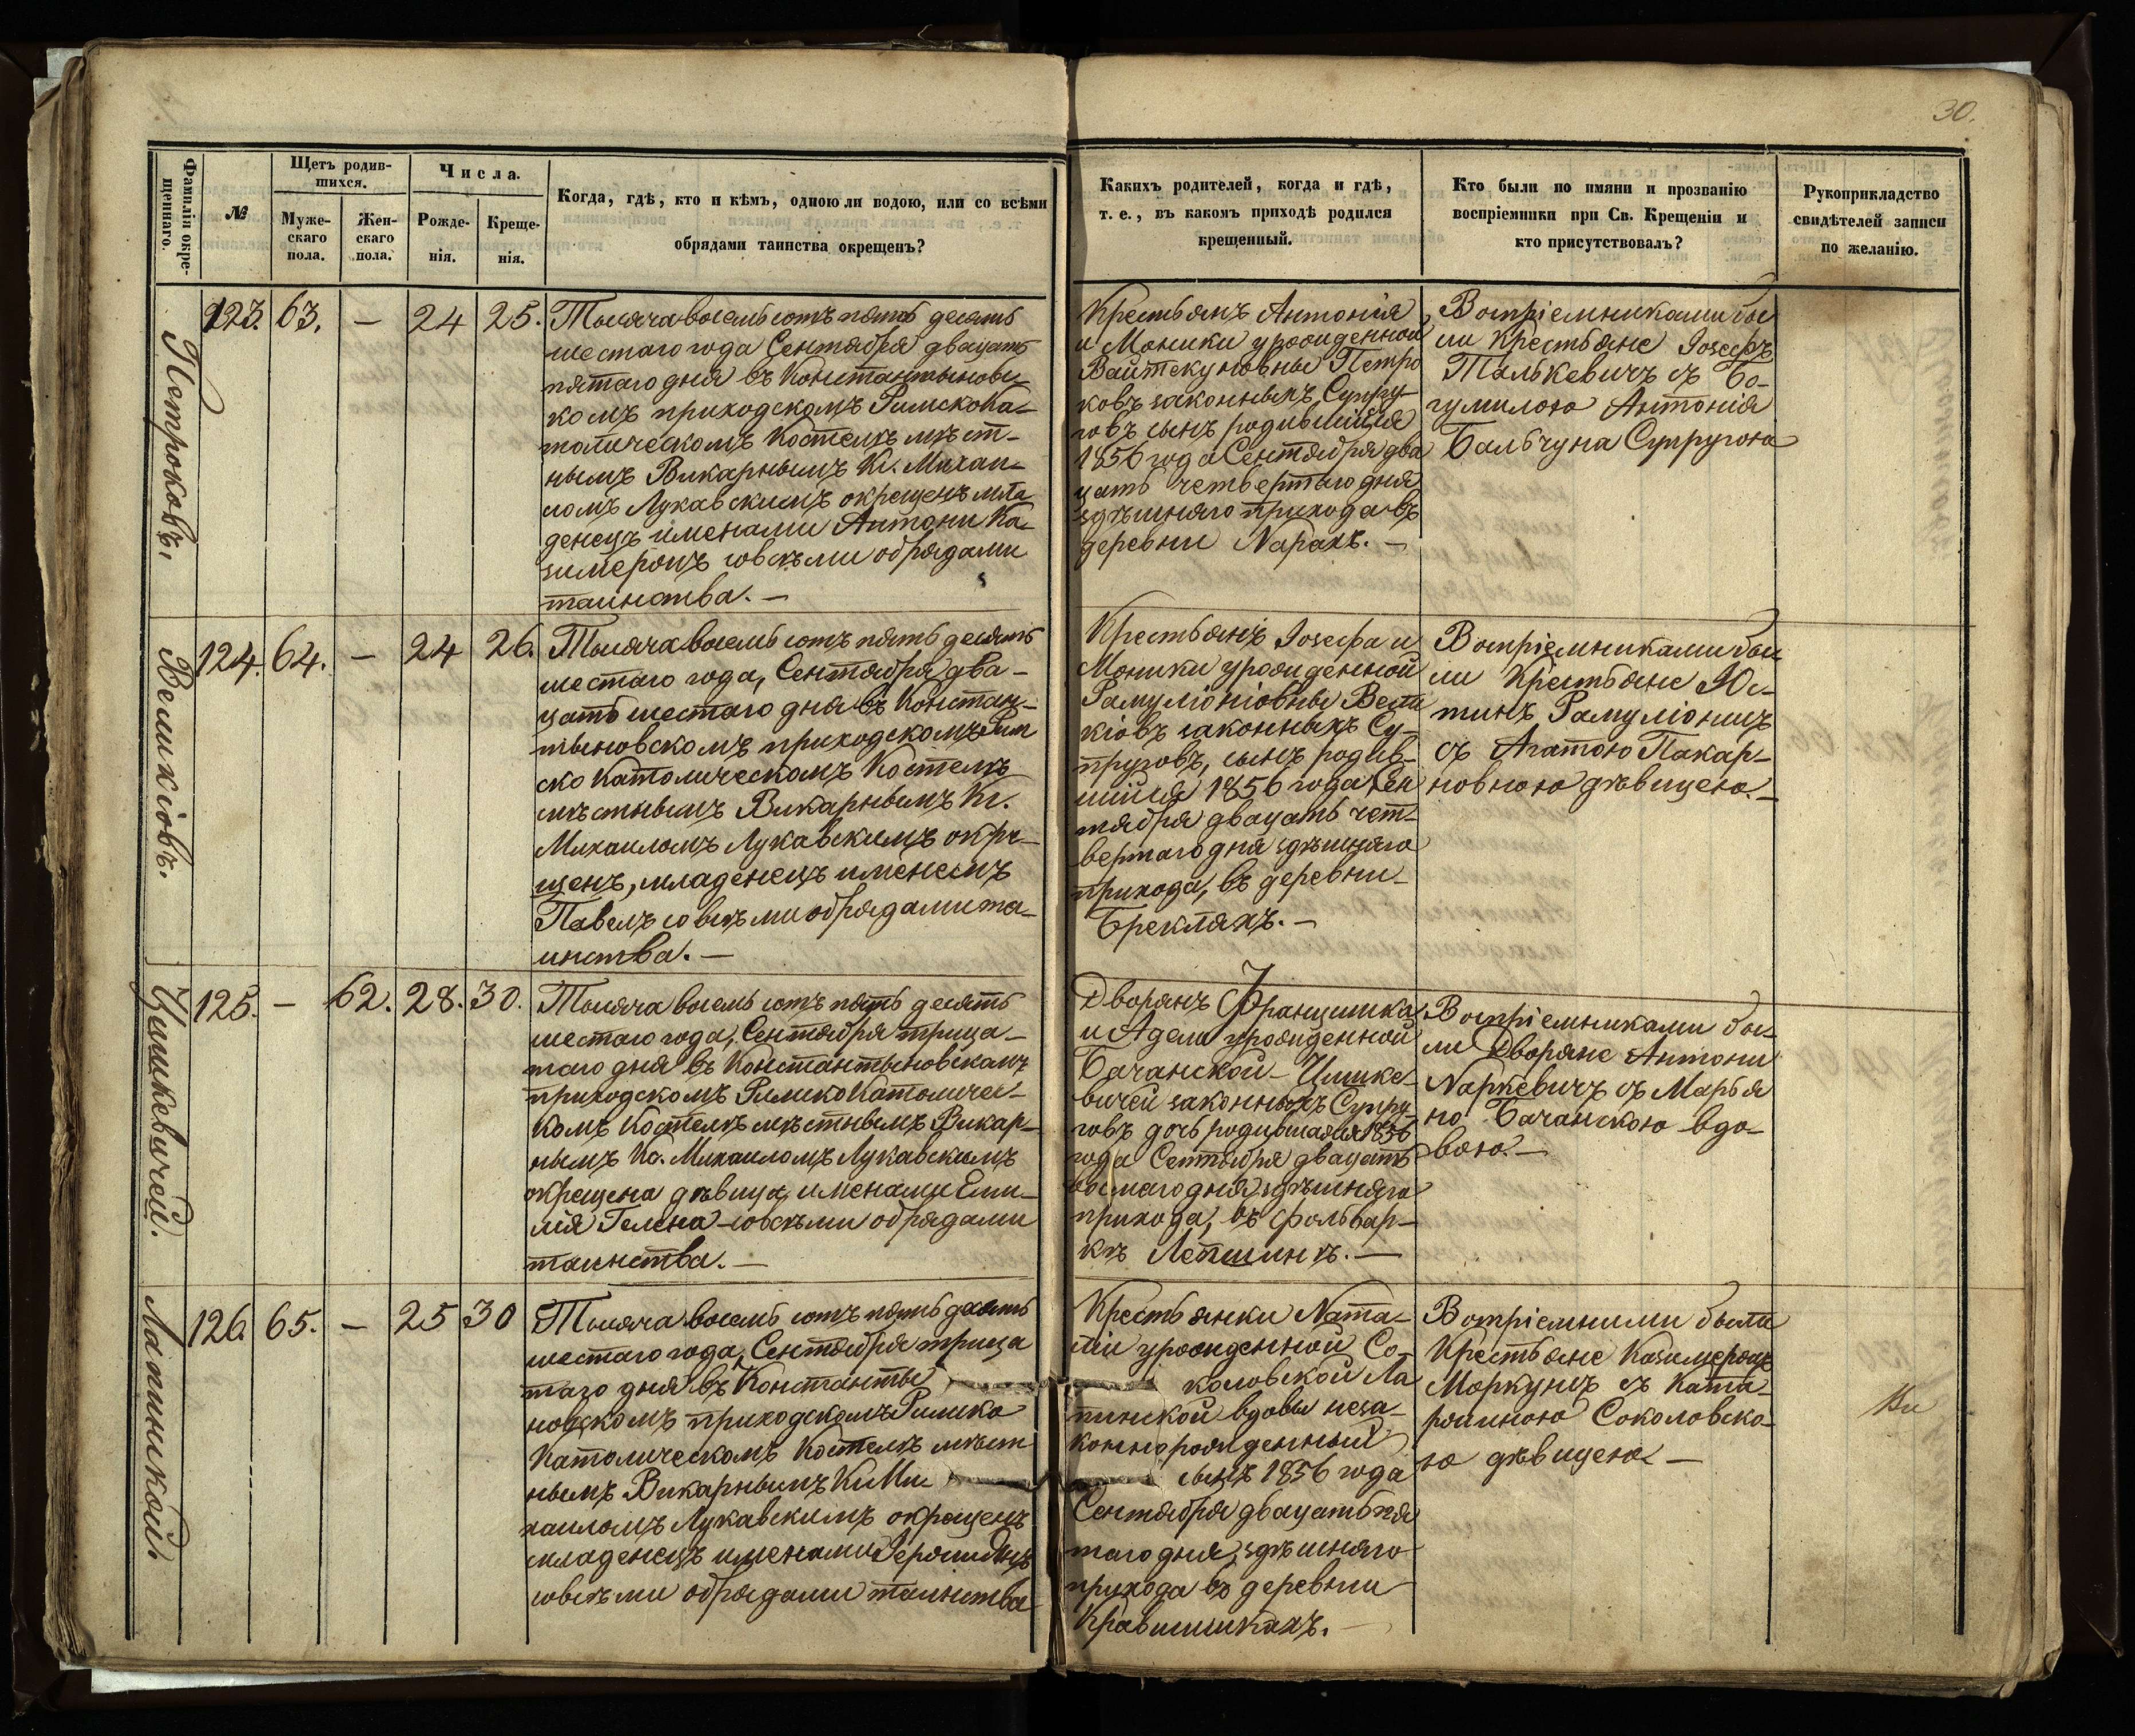 30.
Фамилія окре-
щеннаго.
№
Щетъ родив-
шихся.
Муже-
скаго
пола.
Жен-
скаго
пола.
Числа.
Рожде-
нія.
Креще-
нія.
Когда, гдѣ, кто и кѣмъ, одною ли водою, или со всѣми
обрядами таинства окрещенъ?
Какихъ родителей, когда и гдѣ,
т. е., въ какомъ приходѣ родился
крещенный.
Кто были по имяни и прозванію
воспріемники при Св. Крещеніи и
кто присутствовалъ?
Рукоприкладство
свидѣтелей записи
по желанію.
Петроковъ.
123. 63. — 24 25.
Тысяча восемь сотъ пять десятъ
шестаго года Сентября двацать
пятаго дня въ Константыновс-
комъ приходскомъ Римско Ка-
толическомъ Костелѣ мѣст-
нымъ Викарнымъ Кс. Михаи-
ломъ Лукавскимъ окрещенъ мла
денецъ именами Антони Ка-
зимеромъ со всѣми обрядами
таинства. —
Крестьянъ Антонія
и Моники урожденной
Вайтекуновны Петро
ковъ законныхъ Супру-
говъ сынъ родившійся
1856 года Сентября два
цать четвертаго дня
здѣшняго прихода въ
деревни Narахъ. —
Воспріемниками бы
ли Крестьяне Іosефъ
Талькевичъ съ Бо-
гумилою Антонія
Бальчуна Супругою
Великіовъ.
124. 64. — 24 26.
Тысяча восемь сотъ пять десятъ
шестаго года, Сентября два-
цать шестаго дня въ Констан-
тыновскомъ приходскомъ Рим
ско Католическомъ Костелѣ
мѣстнымъ Викарнымъ Кс.
Михаиломъ Лукавскимъ окре-
щенъ, младенецъ именемъ
Павелъ со всѣми обрядами та-
инства. —
Крестьянъ Іosефа и
Моники урожденной
Рамуліоніовны Вели
кіовъ законныхъ Су-
пруговъ, сынъ родив-
шійся 1856 года Сен
тября двацать чет-
вертаго дня здѣшняго
прихода, въ деревни
Бреклахъ. —
Воспріемниками бы-
ли Крестьяне Юс-
тинъ Рамуліонисъ
съ Агатою Пакар-
новною дѣвицею. —
Цишкевичей.
125. — 62. 28. 30.
Тысяча восемь сотъ пять десятъ
шестаго года, Сентября трица-
таго дня въ Константыновскомъ
приходскомъ Римско Католичес-
комъ Костелѣ мѣстнымъ Викар-
нымъ Кс. Михаиломъ Лукавскимъ
окрещена дѣвица, именами Еми-
лія Гелена со всѣми обрядами
таинства. —
Дворянъ Францишка
и Адели урожденной
Бачанской Цишке-
вичей законныхъ Супру-
говъ дочь родившаяся 1856
года Сентября двацать
восмаго дня, здѣшняго
прихода, въ фольвар-
кѣ Лепшинѣ. —
Воспріемниками бы-
ли Дворяне Антони
Narкевичъ съ Марья
но Бачанскою вдо-
вою. —
Лапинской.
126. 65. — 25 30
Тысяча восемь сотъ пять десятъ
шестаго года, Сентября трица
таго дня въ Константы
новскомъ приходскомъ Римско
Католическомъ Костелѣ мѣст
нымъ Викарнымъ Кс Ми
хаиломъ Лукавскимъ окрещенъ
младенецъ именами Іеронимъ
со всѣми обрядами таинства
Крестьянки Nата-
ліи урожденной Со-
коловской Ла
пинской вдовы неза-
конно рожденный
сынъ 1856 года
Сентября двацать пя
таго дня, здѣшняго
прихода въ деревни
Кравшишкахъ. —
Воспріемниками были
Крестьяне Казимеромъ
Моркунъ съ Ката-
риною Соколовско-
ю дѣвицею —